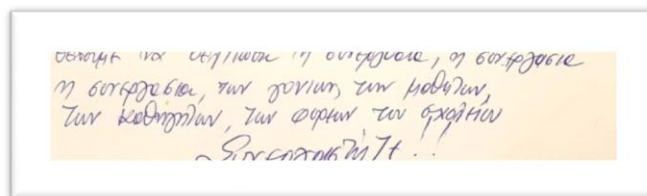 να η συνεργασία, η συνεργασία
η συνεργασία, των γονιων, των μαθητων,
των καθηγητων, των φορεων του σχολειου